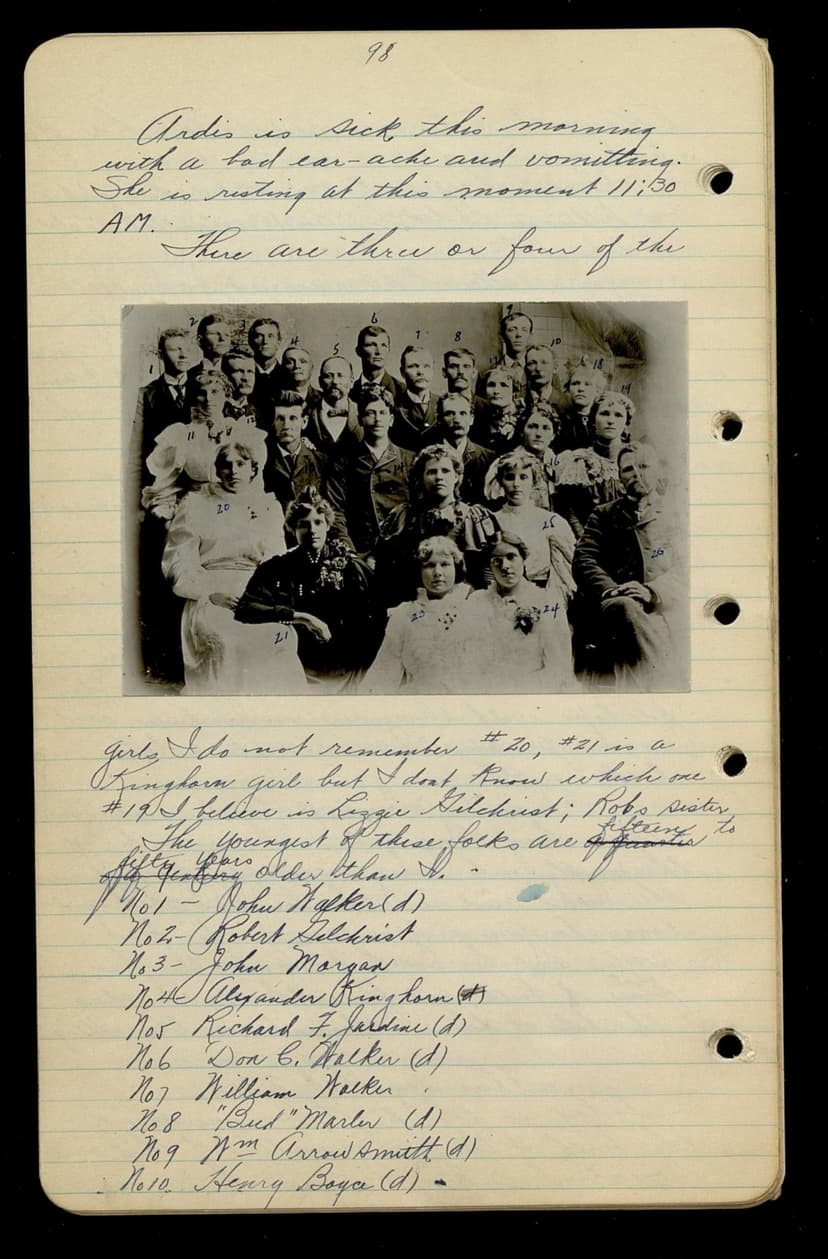 98
Ardis is sick this morning
with a bad ear-ache and vomitting.
She is resting at this moment 11:30
AM.
There are three or four of the
1
2
3
4
5
6
7
8
9
10
11
18
19
11
16
20
25
26
21
23
24
girls I do not remember #20, #21 is a
Kinghorn girl but I dont know which one
#19 I believe is Lizzie Gilchrist; Robs sister
The youngest of these folks are fifteen to
fifty years older than I.
No1 - John Walker (d)
No2 - Robert Gilchrist
No3 - John Morgan
No4 - Alexander Kinghorn (d)
No5 Richard F. Jardine (d)
No6 Don C. Walker (d)
No7 William Walker
No8 "Bud" Marler (d)
No9 Wm Arrowsmith (d)
No10. Henry Boyce (d) -